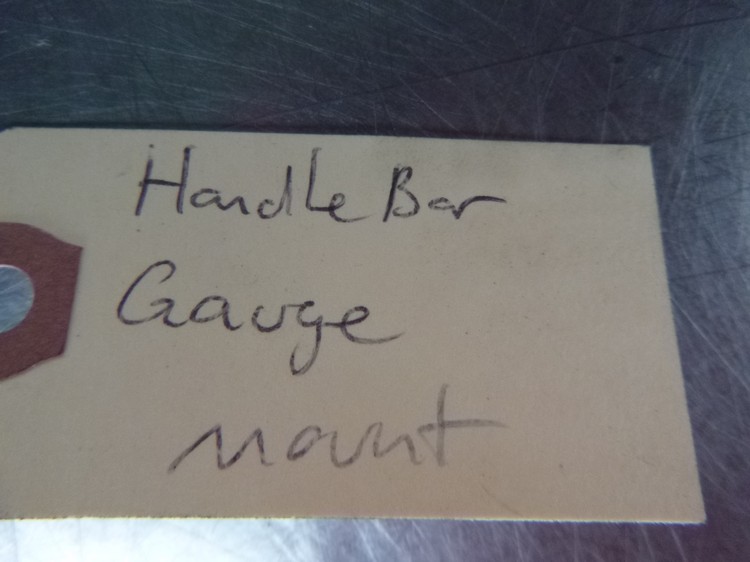 Handle Bar
Gauge
mount